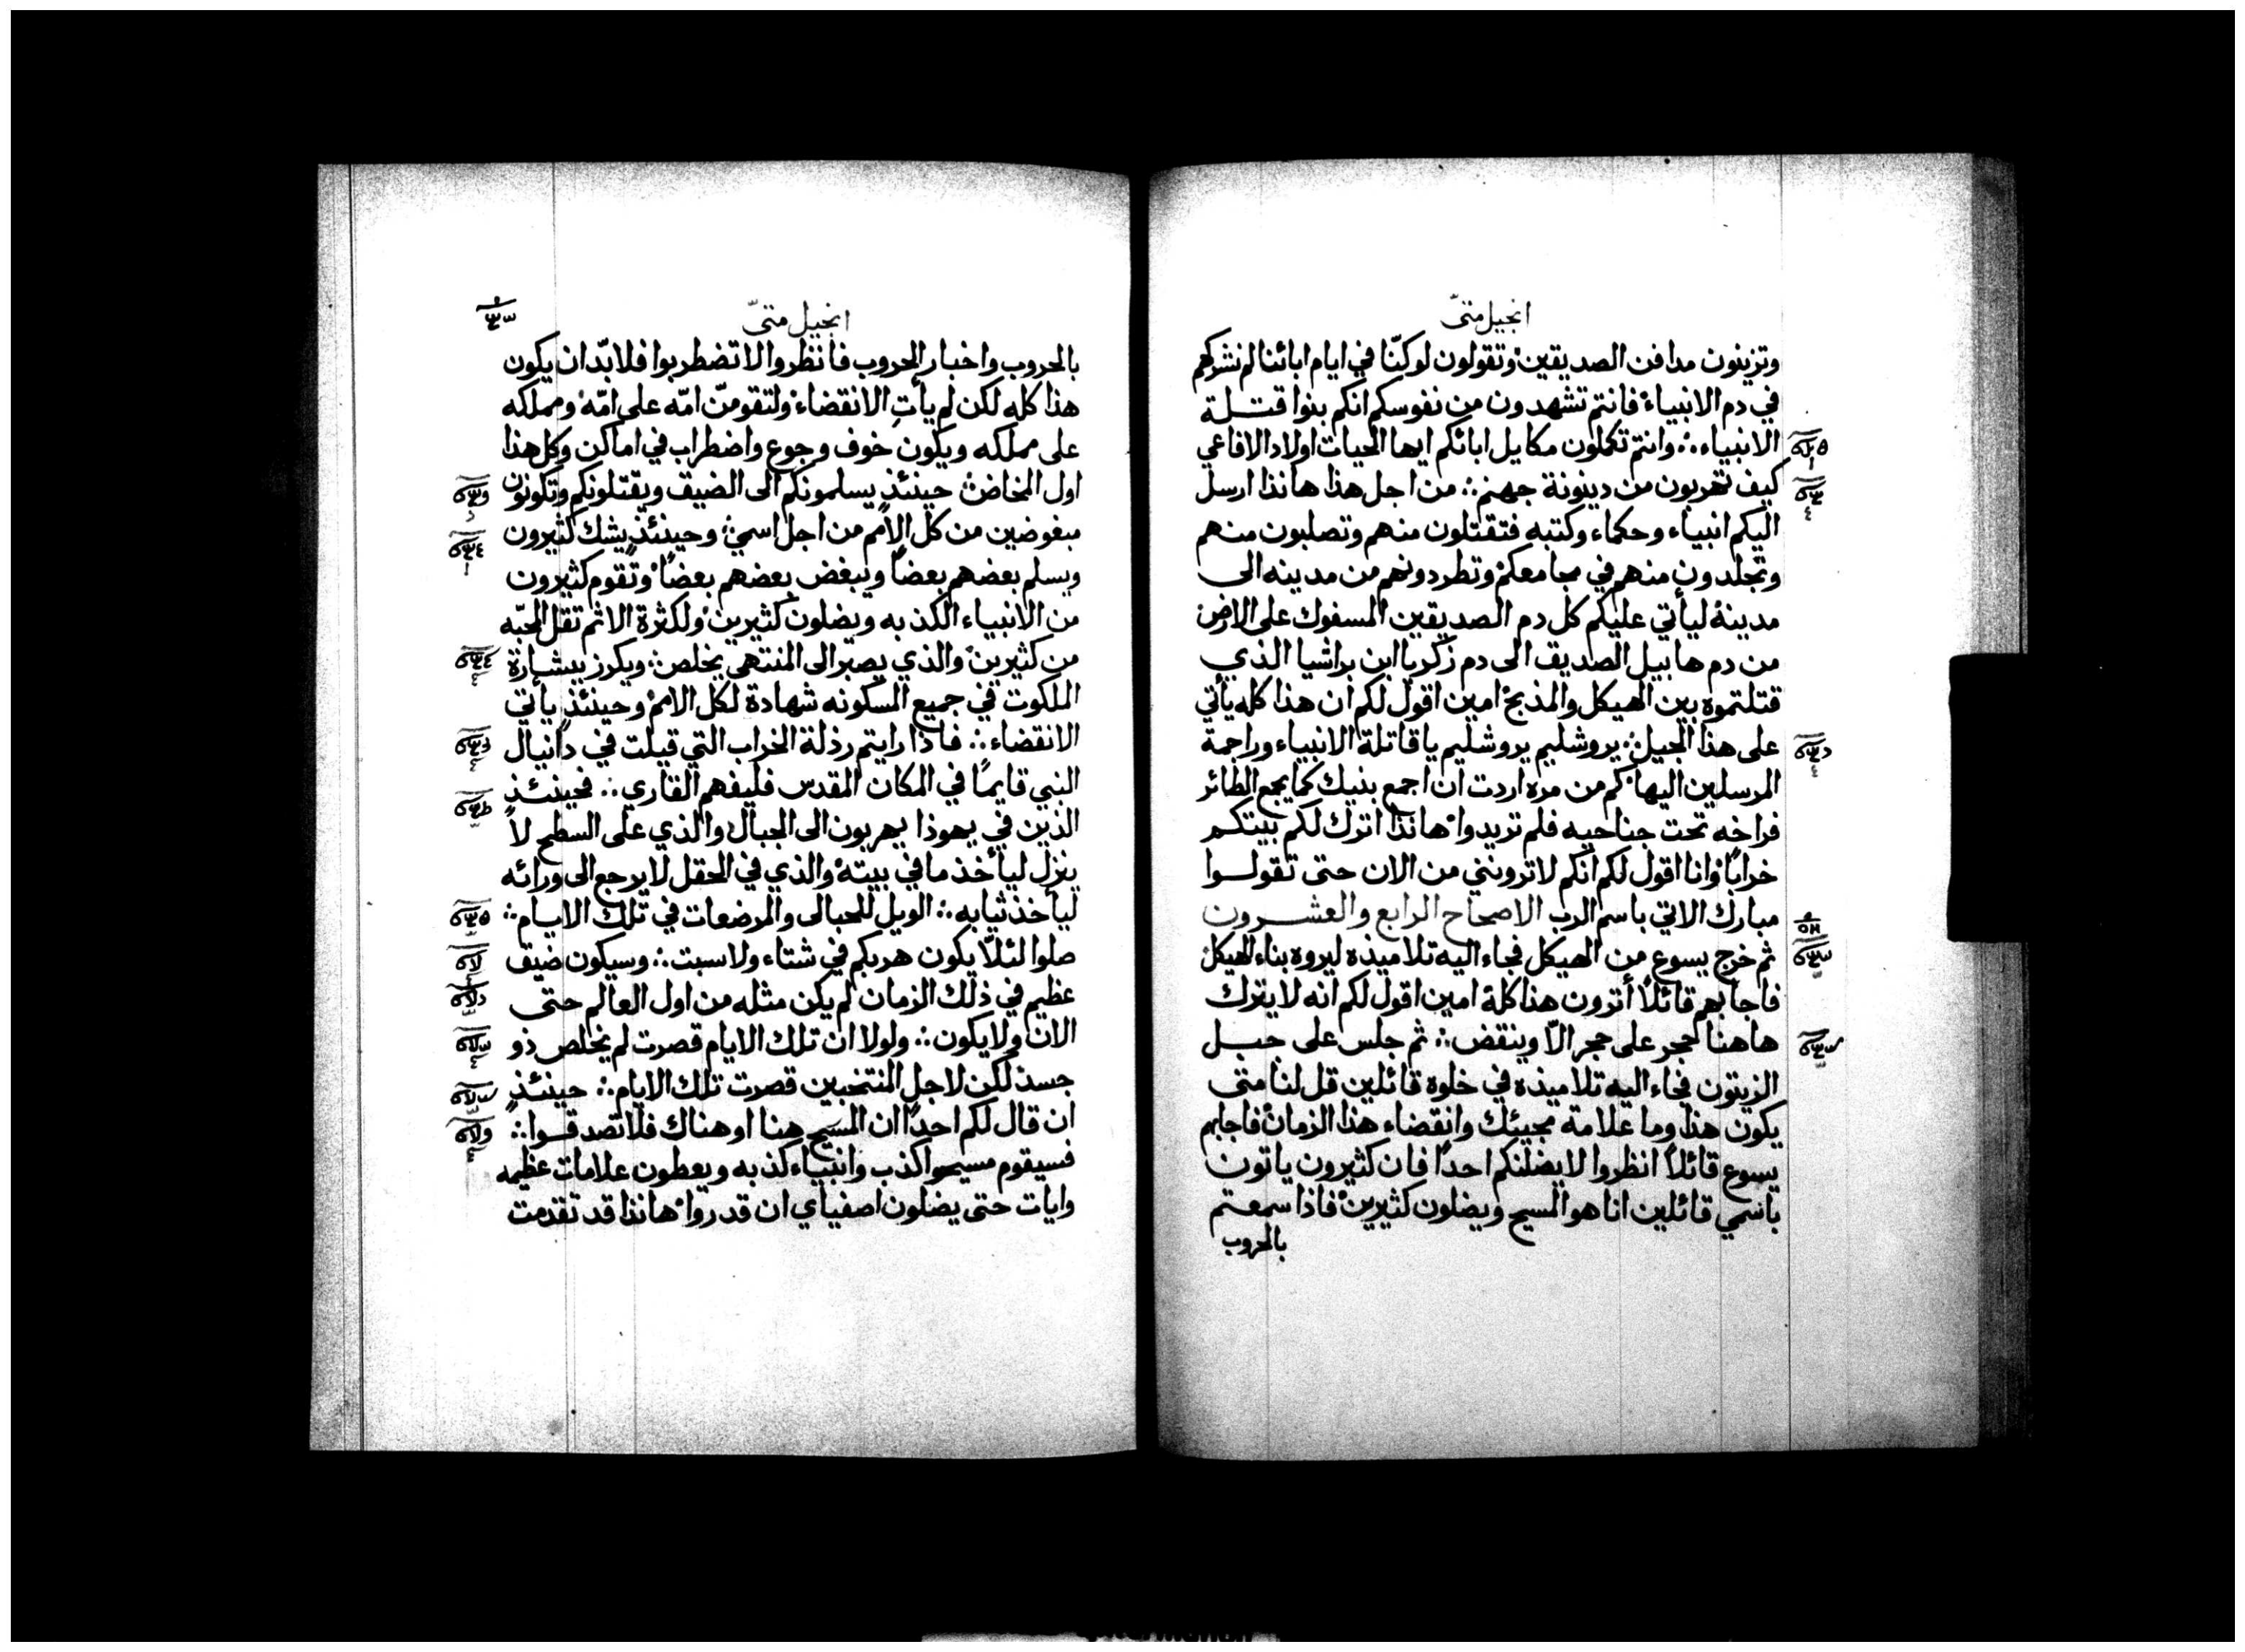 انجيل متىّ
وتزينون مدافن الصديقين وتقولون لو كنّا في ايام ابائنا لم نشركهم
في دم الانبياء فانتم تشهدون من نفوسكم انكم بنوا قتلة
الانبياء وانتم تكملون مكايل ابائكم ايها الحيات اولاد الافاعي
كيف تهربون من دينونة جهنم من اجل هذا هانذا ارسل
اليكم انبياء وحكماء وكتبه فتقتلون منهم وتصلبون منهم
وتجلدون منهم في مجامعكم وتطردونهم من مدينه الى
مدينة ليأتي عليكم كل دم الصديقين المسفوك على الارض
من دم هابيل الصديق الى دم زكريا ابن براشيا الذي
قتلتموه بين الهيكل والمذبح امين اقول لكم ان هذا كله يأتي
على هذا الجيل يروشليم يروشليم يا قاتلة الانبياء وراجمة
المرسلين اليها كم من مره اردت ان اجمع بنيك كما يجمع الطائر
فراخه تحت جناحيه فلم تريدوا هانذا اترك لكم بيتكم
خرابًا وانا اقول لكم انكم لا ترونني من الان حتى تقولوا
مبارك الاتي باسم الرب الاصحاح الرابع والعشرون
ثم خرج يسوع من الهيكل فجاء اليه تلاميذه ليروه بناء الهيكل
فاجابهم قائلاً أترون هذا كلة امين اقول لكم انه لا يترك
هاهنا حجر على حجر الاّ وينقض ثم جلس على جبل
الزيتون فجاء اليه تلاميذه في خلوة قائلين قل لنا متى
يكون هذا وما علامة مجيئك وانقضاء هذا الزمان فاجابهم
يسوع قائلاً انظروا لا يضلنكم احدًا فان كثيرون ياتون
باسمي قائلين انا هو المسيح ويضلون كثيرين فاذا سمعتم
بالحروب
انجيل متىّ
بالحروب واخبار الحروب فانظروا لا تضطربوا فلا بدّ ان يكون
هذا كله لكن لم يأتِ الانقضاء ولتقومنّ امّه على امّه ومملكه
على مملكه ويكون خوف وجوع واضطراب في اماكن وكل هذا
اول المخاض حينئذٍ يسلمونكم الى الضيق ويقتلونكم وتكونون
مبغوضين من كل الامم من اجل اسمي وحينئذٍ يشك كثيرون
ويسلم بعضهم بعضاً ويبغض بعضهم بعضًا وتقوم كثيرون
من الانبياء الكذبه ويضلون كثيرين ولكثرة الاثم تقل المحبّه
من كثيرين والذي يصبر الى المنتهي يخلص ويكرز ببشارة
الملكوت في جميع المسكونه شهادة لكل الامم وحينئذٍ يأتي
الانقضاء فاذا رايتم رذلة الخراب التي قيلت في دانيال
النبي قايمًا في المكان المقدس فليفهم القاري فحينئذٍ
الذين في يهوذا يهربون الى الجبال والذي على السطح لا
ينزل ليأخذ ما في بيته والذي في الحقل لا يرجع الى ورائه
ليأخذ ثيابه الويل للحبالى والمرضعات في تلك الايام
صلوا لئلاّ يكون هربكم في شتاء ولا سبت وسيكون ضيق
عظيم في ذلك الزمان لم يكن مثله من اول العالم حتى
الان ولا يكون ولولا ان تلك الايام قصرت لم يخلص ذو
جسد لكن لاجل المنتخبين قصرت تلك الايام حينئذٍ
ان قال لكم احدًا ان المسيح هنا او هناك فلا تصدقوا
فسيقوم مسيحوا كذب وانبياء كذبه ويعطون علامات عظيمه
وايات حتى يضلون اصفياي ان قدروا هانذا قد تقدمت